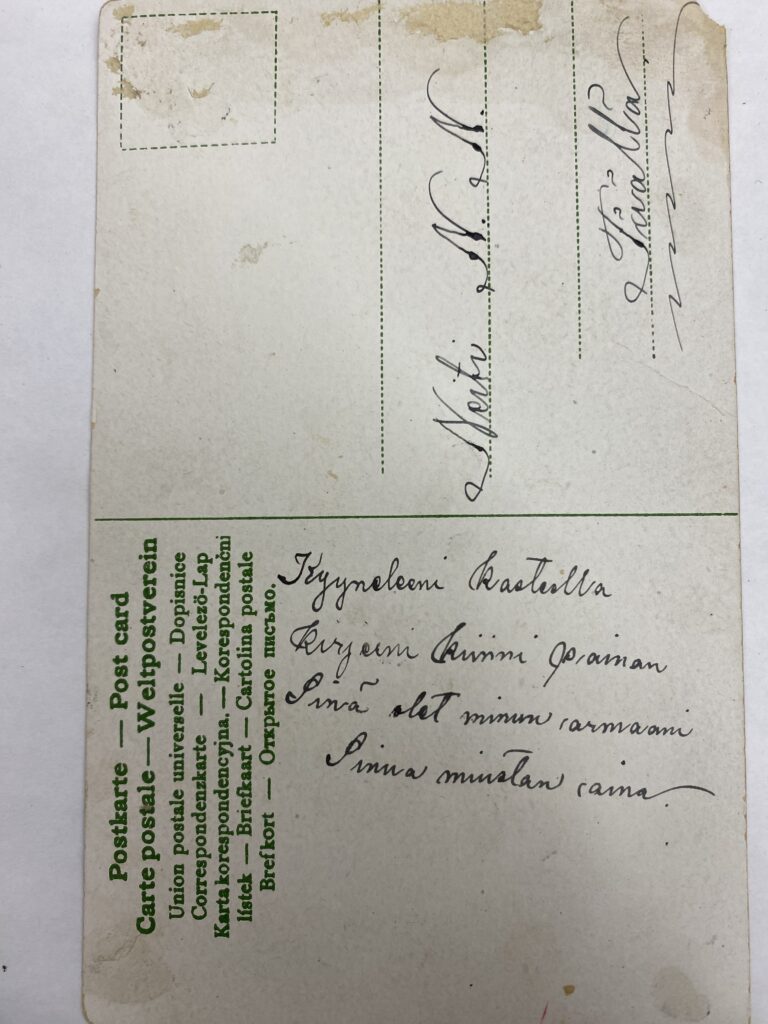 Postkarte — Post card
Carte postale — Weltpostverein
Union postale universelle — Dopisnice
Correspondenzkarte — Levelező-Lap
Karta korespondencyjna. — Korespondenční
lístek — Briefkaart — Cartolina postale
Brefkort — Открытое письмо.
Kyyneleeni kasteella
kirjeeni kiinni painan
Sinä olet minun armaani
Sinua muistan aina
Neiti N. N. N.
Täällä